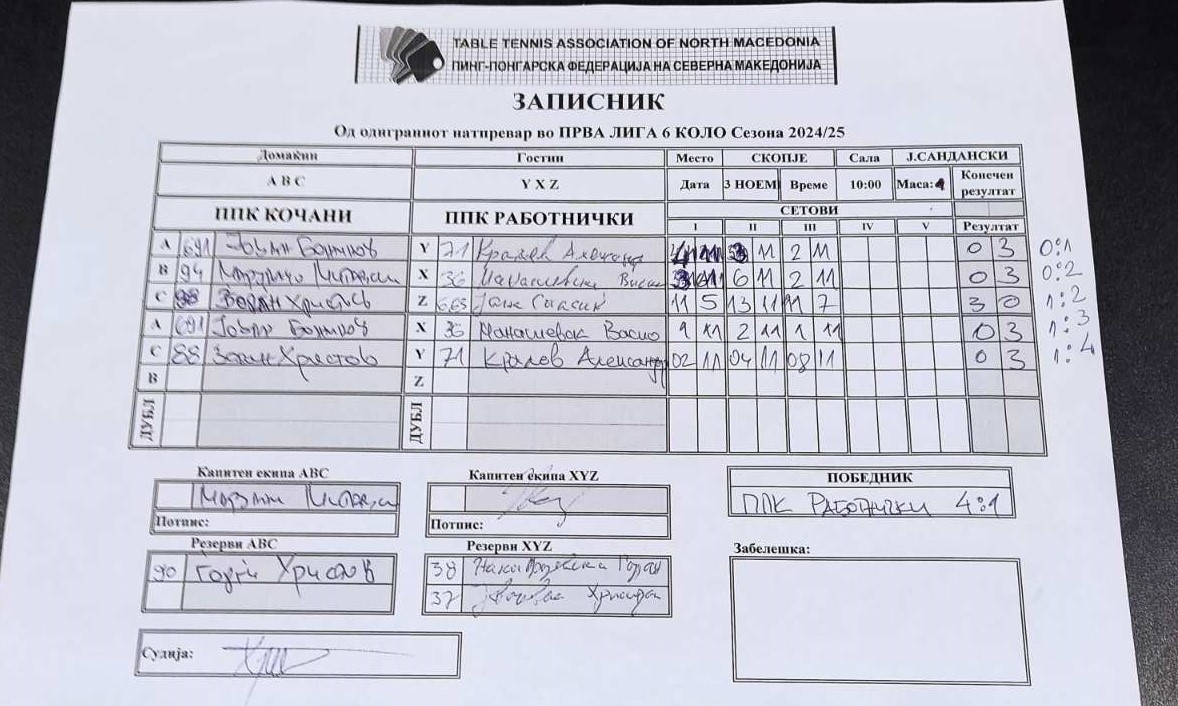 TABLE TENNIS ASSOCIATION OF NORTH MACEDONIA
ПИНГ-ПОНГАРСКА ФЕДЕРАЦИЈА НА СЕВЕРНА МАКЕДОНИЈА
ЗАПИСНИК
Од одиграниот натпревар во ПРВА ЛИГА 6 КОЛО Сезона 2024/25
Домаќин Гостин Место СКОПЈЕ Сала Ј.САНДАНСКИ
А В С Y X Z Дата 3 НОЕМ Време 10:00 Маса: Конечен резултат
ППК КОЧАНИ ППК РАБОТНИЧКИ СЕТОВИ
I II III IV V Резултат
A 691 Јован Y 71 Кралев 11 2 11 0 3 0:1
B 94 X 36 6 11 2 11 0 3 0:2
C Зоран Христов Z 665 Јане Спасик 11 5 13 11 11 7 3 0 1:2
A 691 Јован X 36 Манашевск Васко 9 11 2 11 1 11 0 3 1:3
C 88 Зоран Христов Y 71 Кралев Александр 02 11 04 11 08 11 0 3 1:4
B Z
ДУБЛ ДУБЛ
Капитен екипа АВС Капитен екипа XYZ ПОБЕДНИК
ППК РАБОТНИЧКИ 4:1
Потпис: Потпис:
Резерви АВС Резерви XYZ Забелешка:
90 Христов 38
37
Судија: